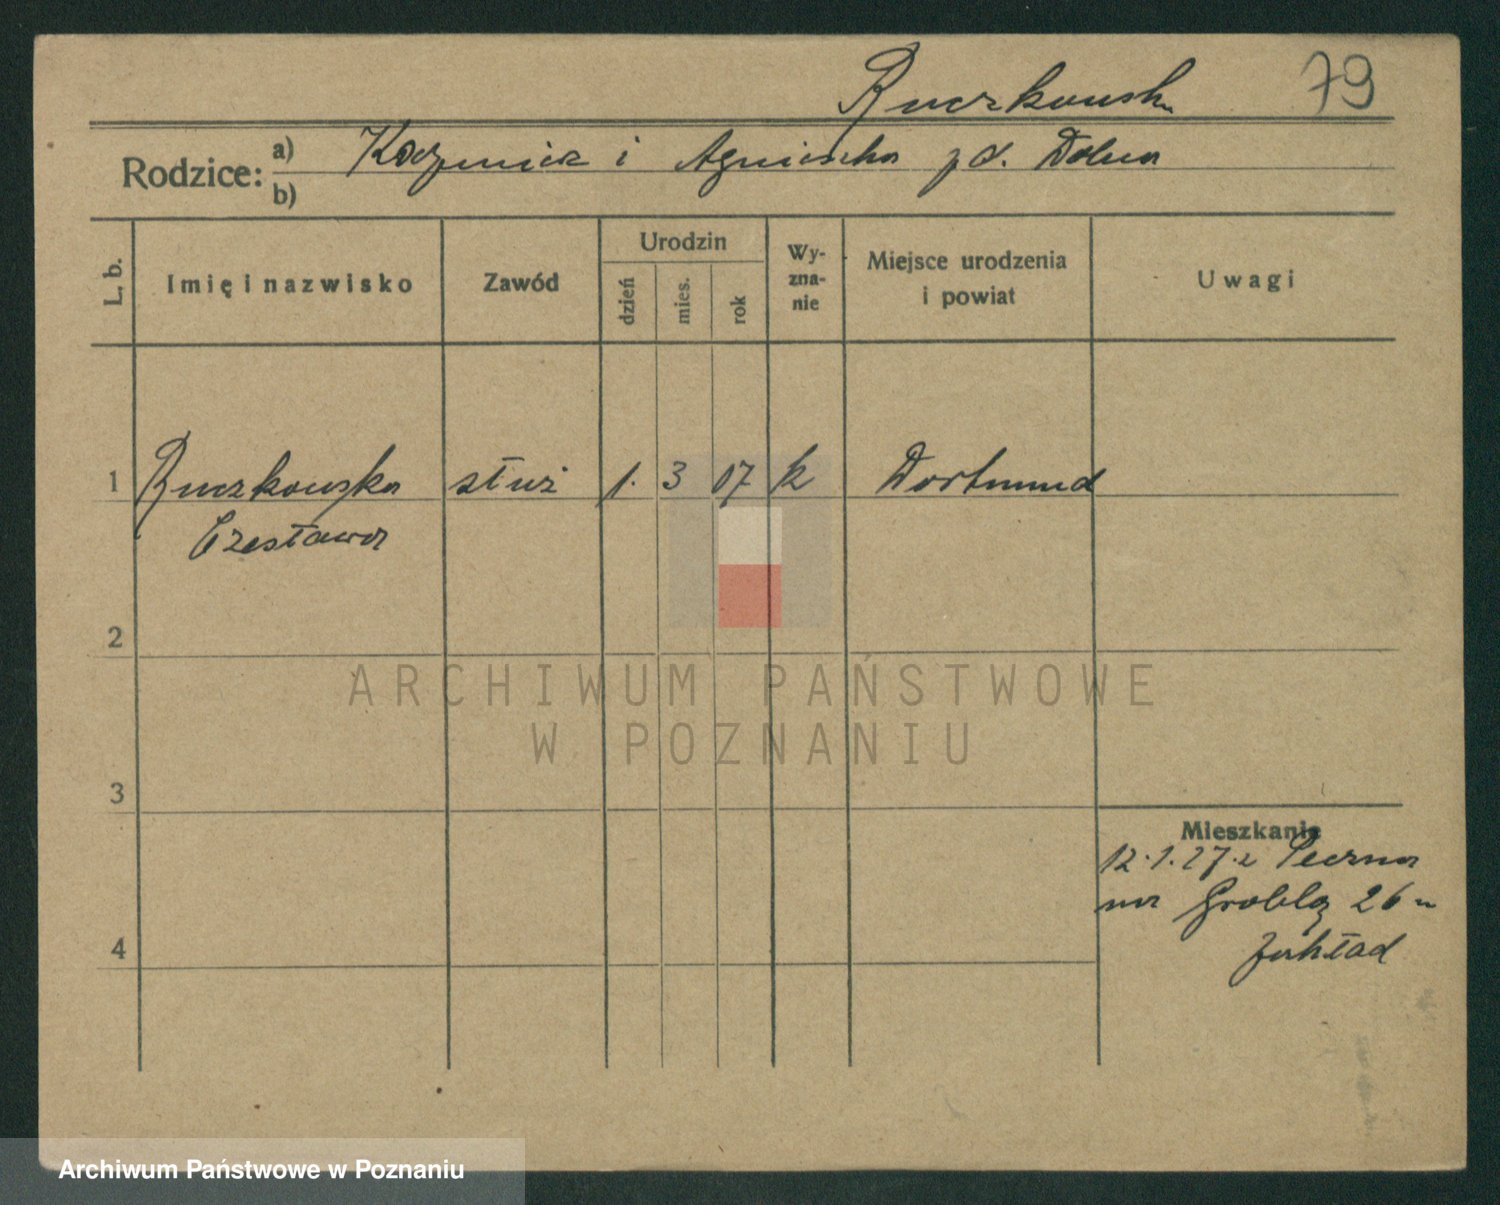 Ruczkowski 79
Rodzice: a) Kazmierz i Agnieszka z d. Dolna
b)
L. b. Imię i nazwisko Zawód Urodzin dzień mies. rok Wy-zna-nie Miejsce urodzenia i powiat Uwagi
1 Ruczkowska służ 1. 3 07 k Dortmund
Czesława
2
3
4
Mieszkanie
12.1.27 z
na Grobla 26
zakład
ARCHIWUM PAŃSTWOWE
W POZNANIU
Archiwum Państwowe w Poznaniu